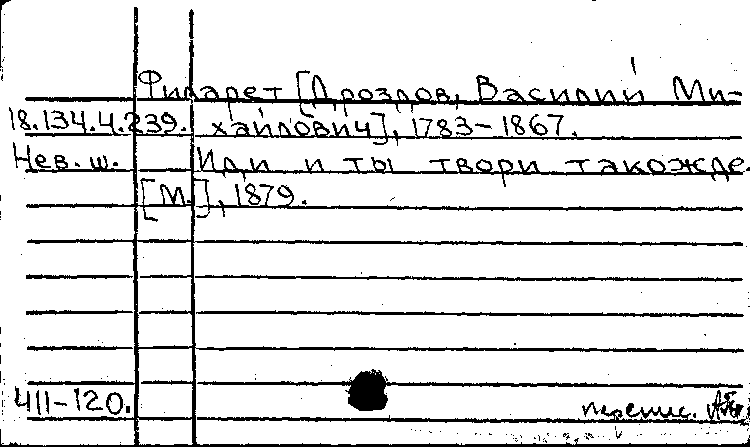 Филарет [Дроздов, Василий Ми-
18.134.4.239. хайлович], 1783-1867.
Нев. ш. Иди и ты твори такожде.
[М.], 1879.
411-120. перепис.